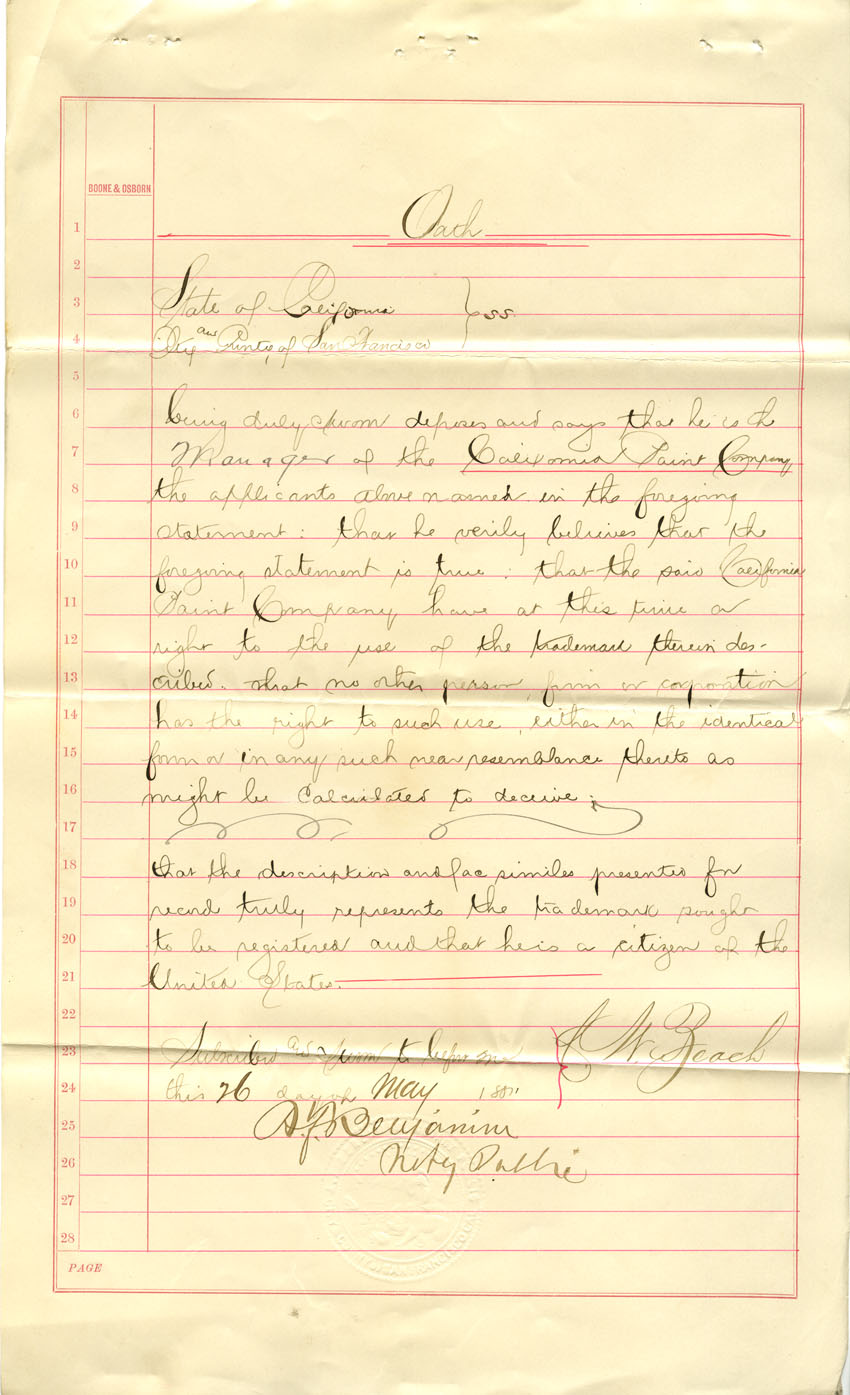 BOONE & OSBORN
1 Oath
2
3 State of California } ss.
4 City and County of San Francisco
5
6 being duly sworn deposes and says that he is the
7 Manager of the California Paint Company
8 the applicants above named in the foregoing
9 statement: that he verily believes that the
10 foregoing statement is true: that the said California
11 Paint Company have at this time a
12 right to the use of the trademark therein des-
13 cribed. that no other person, firm or corporation
14 has the right to such use, either in the identical
15 form or in any such near resemblance thereto as
16 might be calculated to deceive;
17
18 that the description and fac similes presented for
19 record truly represents the trademark sought
20 to be registered and that he is a citizen of the
21 United States.
22
23 Subscribed and sworn to before me } W. Beach
24 this 26 day of May
25 Benjamin
26 Noty Public
27
28
PAGE